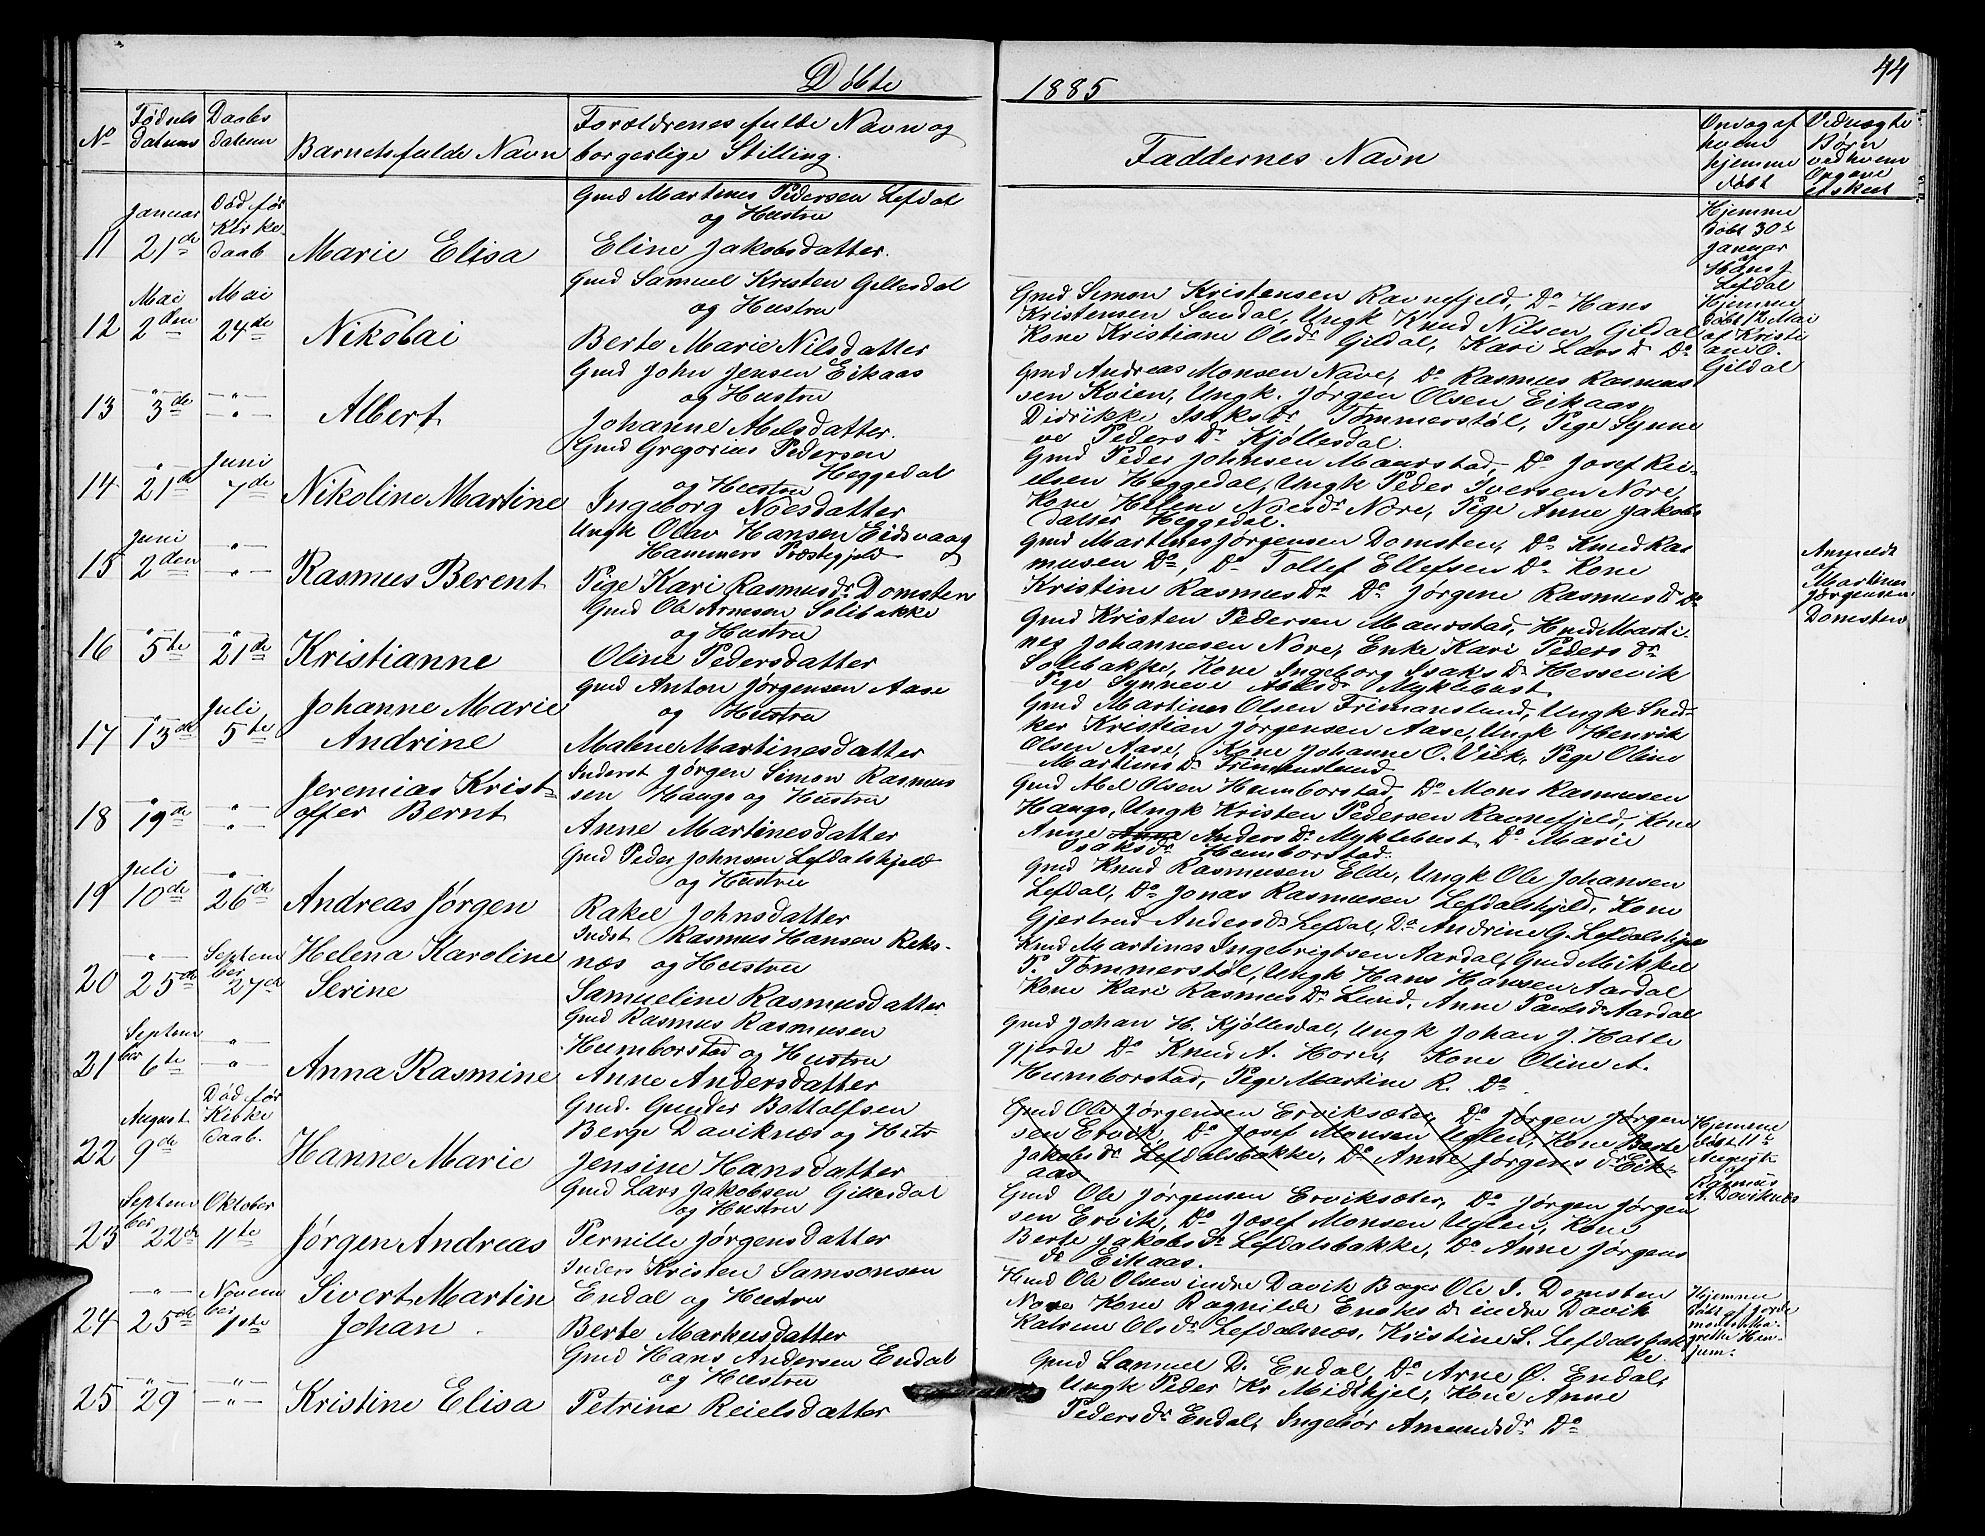 Döbte 1885 44
No
Fødsels datum
Daabs datum
Barnets fulde Navn
Forældrenes fulde Navn og
borgerlige Stilling.
Faddernes Navn
Om og af
hvem
hjemme
døbt
Uægte
Børn
ved hvem
Opgave
er skeet
11
Januar
21de
Død før
Kirke
daab
Marie Elisa
Gmd Martines Pedersen Lefdal
og Hustru
Eline Jakobsdatter.
Hjemme
døbt 30te
Januar
af
Hans J
Lefdal
12
Mai
2den
Mai
24de
Nikolai
Gmd Samuel Kristen Gillesdal
og Hustru
Berte Marie Nilsdatter
Gmd Simon Kristensen Ravnefjeld, Do Hans
Kristensen Sundal, Ungk Knud Nilsen Gildal
Kone Kristiane Olsdr Gildal, Kari Lars d Do
Hjemme
døbt 12 Mai
af Kristi
ane O.
Gildal
13
—"—
3de
—"—
—"—
Albert
Gmd John Jensen Eikaas
og Hustru
Johanne Abelsdatter.
Gmd Andreas Monsen Nave, Do Rasmus Rasmus
sen Kvien, Ungk. Jørgen Olsen Eikaas,
Didrikke Isaksdr Tømmerstøl, Pige Synne
ve Pedersdr Kjøllesdal.
14
—"—
21de
Juni
7de
Nikoline Martine
Gmd Gregorius Pedersen
Heggedal
og Hustru
Ingeborg Noesdatter
Gmd Peder Johnsen Maurstad, Do Josef Rei-
elsen Heggedal, Ungk Peder Iversen Nore,
Kone Helene Noesdr Nore, Pige Anne Jakobs
datter Heggedal.
15
Juni
2den
—"—
—"—
Rasmus Berent
Ungk Olav Hansen Eidsvaag
Hammers Præstegjeld
Pige Kari Rasmusdr Domsten
Gmd Martines Jørgensen Domsten, Do Knud Ras
musen Do, Do Tollef Ellefsen Do Kone
Kristine Rasmusdr Do Jørgene Rasmus d Do
Anmeldt
af
Martines
Jørgensen
Domsten
16
—"—
5te
—"—
21de
Kristianne
Gmd Ole Arnesen Solibakke
og Hustru
Oline Pedersdatter
Gmd Kristen Pedersen Maurstad, Hmd Marti-
nes Johannesen Nore, Enke Kari Peders dr
Solibakke, Kone Ingeborg Isaks Dr Hessevik
Pige Synneve Abelsdr Myklebust
17
—"—
13de
Juli
5te
Johanne Marie
Andrine
Gmd Anton Jørgensen Aase
og Hustru
Malene Martinesdatter
Gmd Martines Olsen Frimanslund, Ungk Sned-
ker Kristian Jørgensen Aase, Ungk Henrik
Olsen Aase, Kone Johanne O. Vik, Pige Oline
Martines Dr Frimanslund
18
—"—
19de
—"—
—"—
Jeremias Krist-
offer Bernt
Inderst Jørgen Simon Rasmus
sen Hauge og Hustru
Anne Martinesdatter
Gmd Abel Olsen Humborstad, Do Mons Rasmusen
Hauge, Ungk Kristen Pedersen Ravnefjeld, Kone
Anne Anne Anders Dr Myklebust, Do Marie
Isaksdr Humborstad.
19
Juli
10de
—"—
26de
Andreas Jørgen
Gmd Peder Johnsen Lefdalskjeld
og Hustru
Rakel Johnsdatter
Gmd Knud Rasmusen Elde, Ungk Ole Johansen
Lefdal, Do Jonas Rasmusen Lefdalskjeld, Kone
Gjertrud Anders dr Lefdal, Do Andrine G. Lefdalskjel
20
—"—
25de
Septem
ber
27de
Helena Karoline
Serine
Indst Rasmus Hansen Reks-
næs og Hustru
Samueline Rasmusdatter
Hmd Martines Ingebrigtsen Aardal, Gmd Mikkel
P. Tømmerstøl, Ungk Hans Hansen Aardal
Kone Kari Rasmus Dr Lund, Anne Pauls dr Aardal
21
Septem
ber
6te
—"—
—"—
Anna Rasmine
Gmd Rasmus Rasmusen
Humborstad og Hustru
Anne Andersdatter
Gmd Johan H. Kjøllesdal, Ungk Johan J. Hatle
gjerde Do Knud A. Hore, Kone Oline A.
Humborstad, Pige Martine R. Do
22
August
9de
Død før
Kirke
daab.
Hanne Marie
Gmd. Gunder Bottolfsen
Berge Daviknæs og Hustr
Jensine Hansdatter
Gmd Ole Jørgensen Erviksæter, Do Jørgen Jørgen
sen Ervik, Do Josef Monsen Uglen, Kone Berte
Jakobs dr Lefdalsbakke, Do Anne Jørgens dr Eik-
aas
Hjemme
døbt 11te
August
af
Rasmus
A. Daviknæs
23
Septem
ber
22de
Oktober
11te
Jørgen Andreas
Gmd Lars Jakobsen Gillesdal
og Hustru
Pernille Jørgensdatter
Gmd Ole Jørgensen Erviksæter, Do Jørgen Jørgen
sen Ervik, Do Josef Monsen Uglen, Kone
Berte Jakobs dr Lefdalsbakke, Do Anne Jørgens
dr Eikaas.
24
—"—
25de
Novem
ber
1ste
Sivert Martin
Johan.
Inders Kristen Samsonsen
Endal og Hustru
Berte Markusdatter
Hmd Ole Olsen indre Davik Bager Ole S. Domsten
Nore Kone Ragnilde Enoks dr indre Davik
Katrine Olsdr Lefdalsnæs, Kristine S. Lefdalsbak
ke.
Hjemme
døbt af Jorde
moder Ma-
grethe Hen-
jum.
25
—"—
29
—"—
—"—
Kristine Elisa
Gmd Hans Andersen Endal
og Hustru
Petrine Reielsdatter
Gmd Samuel D. Endal, Do Arne Ø. Endal,
Ungk Peder Kr Midthjel, Kone Anne
Pedersdr Endal, Ingebor Amundsdr Do